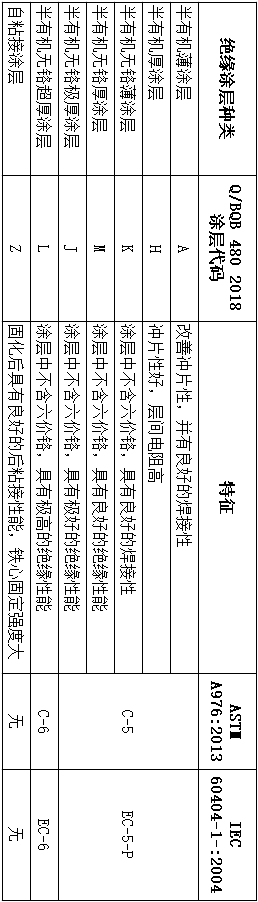 绝缘涂层种类 Q/BQB 480 2018 涂层代码 特征 ASTM A976:2013 IEC 60404-1-:2004
半有机薄涂层 A 改善冲片性，并有良好的焊接性
半有机厚涂层 H 冲片性好，层间电阻高
半有机无铬薄涂层 K 涂层中不含六价铬，具有良好的焊接性 C-5 EC-5-P
半有机无铬厚涂层 M 涂层中不含六价铬，具有良好的绝缘性能
半有机无铬极厚涂层 J 涂层中不含六价铬，具有极好的绝缘性能
半有机无铬超厚涂层 L 涂层中不含六价铬，具有极高的绝缘性能 C-6 EC-6
自粘接涂层 Z 固化后具有良好的后粘接性能，铁心固定强度大 无 无